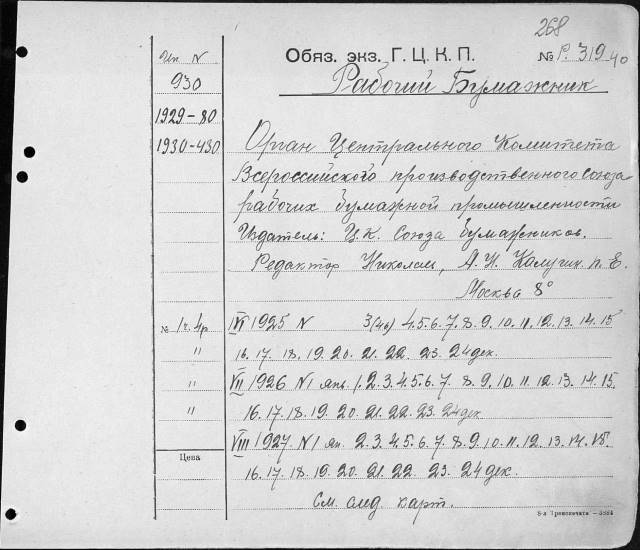 268
Обяз. экз. Г. Ц. К. П.
№ Р. 319 40
Ин. N
930
Рабочий Бумажник
1929-80
1930-430
Орган Центрального Комитета
Всероссийского производственного союза
рабочих бумажной промышленности
Издатель: Ц.К. Союза бумажников.
Редактор Николаи, А. И. Калугин. п. Е.
Москва 8°
№ 1 г. 4 р
VI 1925 N 3(46) 4.5.6.7.8.9.10.11.12.13.14.15
" 16.17.18.19.20.21.22.23.24 дек.
" VII 1926 N 1 янв. 1.2.3.4.5.6.7.8.9.10.11.12.13.14.15.
" 16.17.18.19.20.21.22.23.24 дек
VIII 1927 N 1 ян. 2.3.4.5.6.7.8.9.10.11.12.13.14.15.
Цена
16.17.18.19.20.21.22.23.24 дек.
См. след. карт.
8-я Транспечати — 5884